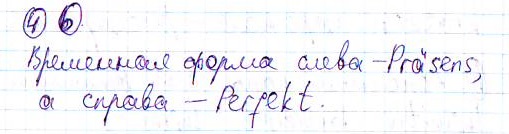 4 б
Временная форма слева – Präsens,
а справа – Perfekt.